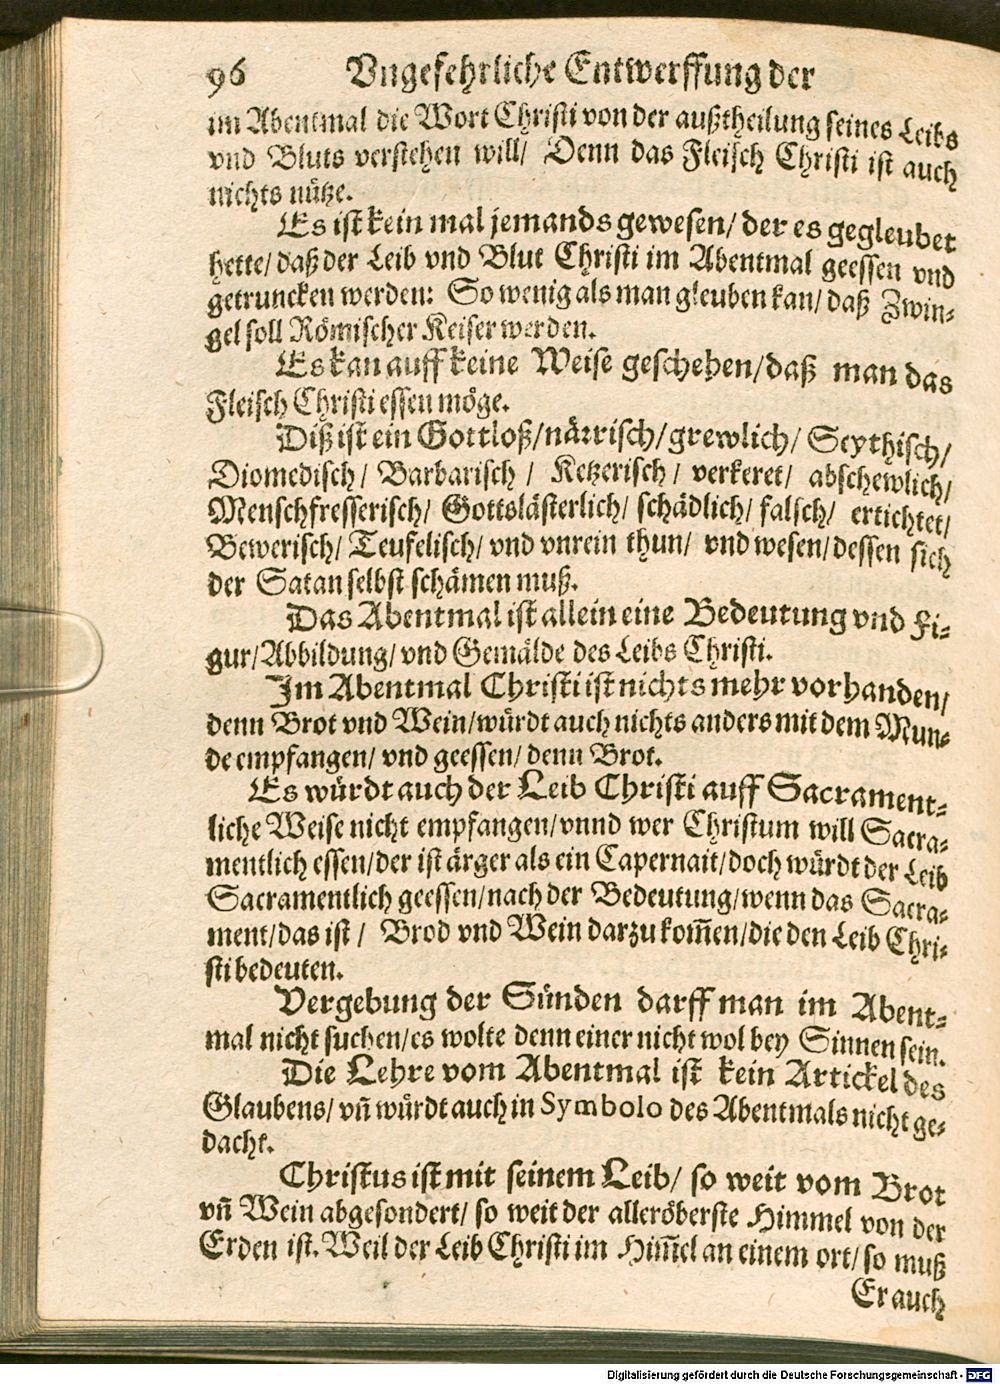 96 Vngefehrliche Entwerffung der
im Abentmal die Wort Christi von der außtheilung seines Leibs
vnd Bluts verstehen will/ Denn das Fleisch Christi ist auch
nichts nütze.
Es ist kein mal jemands gewesen/ der es gegleubet
hette/ daß der Leib vnd Blut Christi im Abentmal geessen vnd
getruncken werden: So wenig als man gleuben kan/ daß Zwin-
gel soll Römischer Keiser werden.
Es kan auff keine Weise geschehen/ daß man das
Fleisch Christi essen möge.
Diß ist ein Gottloß/ närrisch/ grewlich/ Scythisch/
Diomedisch/ Barbarisch/ Ketzerisch/ verkeret/ abschewlich/
Menschfresserisch/ Gottslästerlich/ schädlich/ falsch/ ertichtet/
Bewerisch/ Teufelisch/ vnd vnrein thun/ vnd wesen/ dessen sich
der Satan selbst schämen muß.
Das Abentmal ist allein eine Bedeutung vnd Fi-
gur/ Abbildung/ vnd Gemälde des Leibs Christi.
Im Abentmal Christi ist nichts mehr vorhanden/
denn Brot vnd Wein/ würdt auch nichts anders mit dem Mun-
de empfangen/ vnd geessen/ denn Brot.
Es würdt auch der Leib Christi auff Sacrament-
liche Weise nicht empfangen/ vnnd wer Christum will Sacra-
mentlich essen/ der ist ärger als ein Capernait/ doch würdt der Leib
Sacramentlich geessen/ nach der Bedeutung/ wenn das Sacra-
ment/ das ist/ Brod vnd Wein darzu kom̄en/ die den Leib Chri-
sti bedeuten.
Vergebung der Sünden darff man im Abent-
mal nicht suchen/ es wolte denn einer nicht wol bey Sinnen sein.
Die Lehre vom Abentmal ist kein Artickel des
Glaubens/ vn̄ würdt auch in Symbolo des Abentmals nicht ge-
dacht.
Christus ist mit seinem Leib/ so weit vom Brot
vn̄ Wein abgesondert/ so weit der alleröberste Himmel von der
Erden ist. Weil der Leib Christi im Him̄el an einem ort/ so muß
Er auch
Digitalisierung gefördert durch die Deutsche Forschungsgemeinschaft - DFG